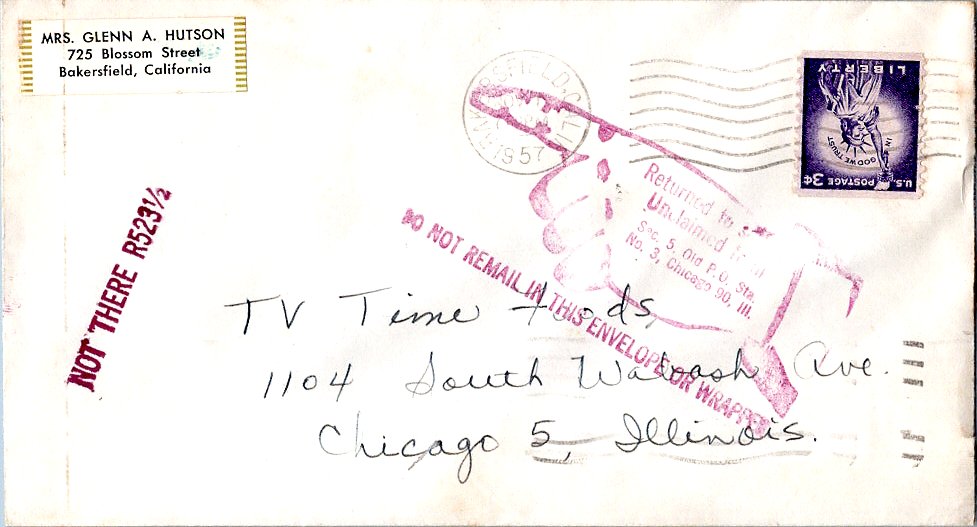 MRS. GLENN A. HUTSON
725 Blossom Street
Bakersfield, California
BAKERSFIELD, CALIF
1957
LIBERTY
IN GOD WE TRUST
U.S. POSTAGE 3¢
Returned to
Unclaimed from
Sec. 5, Old P. O. Sta.
No. 3, Chicago 90, Ill.
NOT THERE R523½
DO NOT REMAIL IN THIS ENVELOPE OR WRAPPER
TV Time foods,
1104 South Wabash Ave.
Chicago 5, Illinois.